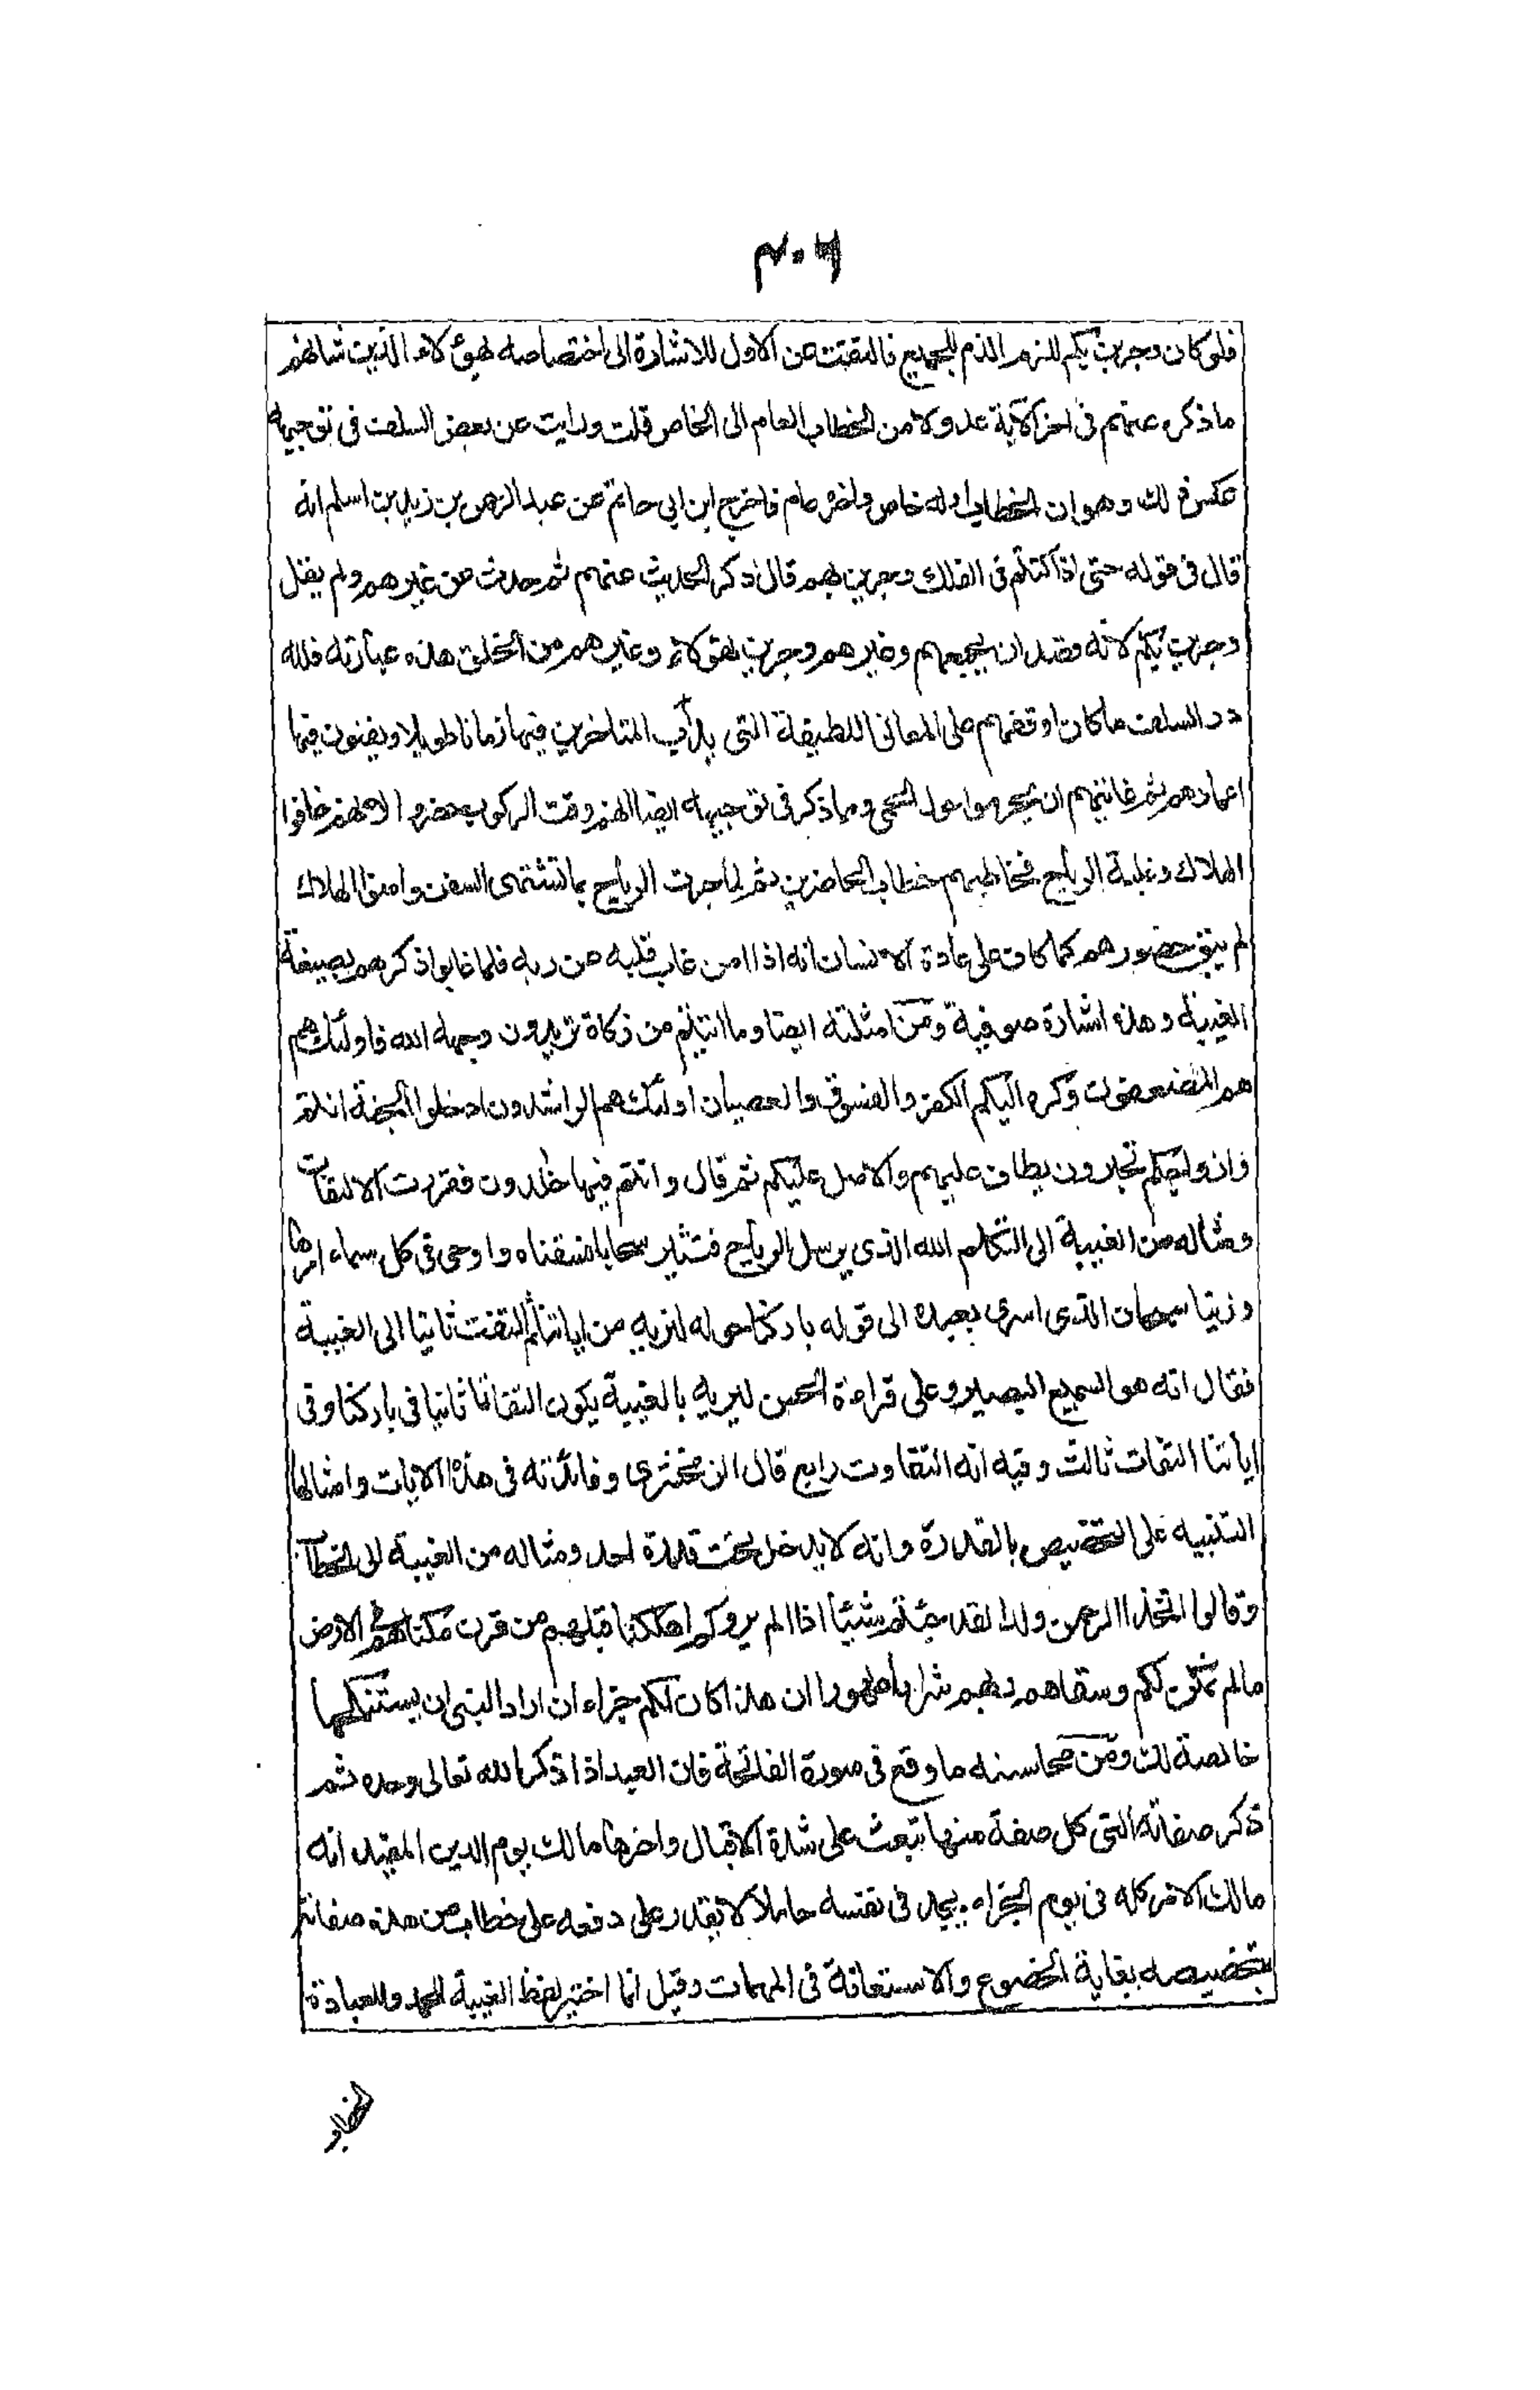 ٣٠٦
فلو كان وجرين بكم للزم الذم للجميع فالتفت عن الاول للاشارة الى اختصاصه لهؤلاء الذين شانهم
ما ذكره عنهم فى اخر الآية عدولا من الخطاب العام الى الخاص قلت ورايت عن بعض السلف فى توجيهه
عكس ذلك وهو ان الخطاب اوله خاص واخره عام فاخرج ابن ابى حاتم عن عبد الرحمن بن زيد بن اسلم انه
قال فى قوله حتى اذا كنتم فى الفلك وجرين بهم قال ذكر الحديث عنهم ثم حدث عن غيرهم ولم يقل
وجرين بكم لانه قصد ان يجمعهم وغيرهم وجرين بهؤلاء وغيرهم من الخلق هذه عبارته فلله
در السلف ما كان اوقفهم على المعانى اللطيفة التى يدأب المتاخرين فيها زمانا طويلا ويفنون فيها
اعمارهم ثم غايتهم ان يحوموا حول الحمى ومما ذكر فى توجيهه ايضا انهم وقت الركوب حضروا الا انهم خافوا
الهلاك وغلبة الرياح فخاطبهم خطاب الحاضرين ثم لما جرت الرياح بما تشتهى السفن وامنوا الهلاك
لم يبق حضورهم كما كان على عادة الانسان انه اذا امن غاب قلبه عن ربه فلما غابوا ذكرهم بصيغة
الغيبة وهذه اشارة صوفية ومن امثلته ايضا وما اتيتم من زكاة تريدون وجه الله فاولئك هم
هم المضعفون وكره اليكم الكفر والفسوق والعصيان اولئك هم الراشدون ادخلوا الجنة انتم
وازواجكم تحبرون يطاف عليهم والاصل عليكم ثم قال وانتم فيها خلدون فقررت الالتفات
ومثاله من الغيبة الى التكلم الله الذى يرسل الرياح فتثير سحابا فسقناه واوحى فى كل سماء امرها
وزينا سبحان الذى اسرى بعبده الى قوله باركنا حوله لنريه من اياتنا ثم التفت ثانيا الى الغيبة
فقال انه هو السميع البصير وعلى قراءة الحسن ليريه بالغيبة يكون التفاتا ثانيا فى باركنا وفى
اياتنا التفات ثالث وفيه انه التفاوت رابع قال الزمخشرى وفائدته فى هذه الايات وامثالها
التنبيه على التخصيص بالقدرة وانه لا يدخل تحت قدرة احد ومثاله من الغيبة الى الخطاب
وقالوا اتخذ الرحمن ولدا لقد جئتم شيئا ادا الم يروكم اهلكنا قبلهم من قرن مكناهم فى الارض
ما لم نمكن لكم وسقاهم ربهم شرابا طهورا ان هذا كان لكم جزاء ان اراد النبى ان يستنكحها
خالصة لك ومن محاسنه ما وقع فى سورة الفاتحة فان العبد اذا ذكر الله تعالى وحده ثم
ذكر صفاته التى كل صفة منها تبعث على شدة الاقبال واخرها مالك يوم الدين المفيد انه
مالك الامر كله فى يوم الجزاء يجد فى نفسه حاملا لا يقدر على دفعه على خطاب من هذه صفاته
بتخصيصه بغاية الخضوع والاستعانة فى المهمات وقيل انما اختير لفظ الغيبة للحمد وللعبادة